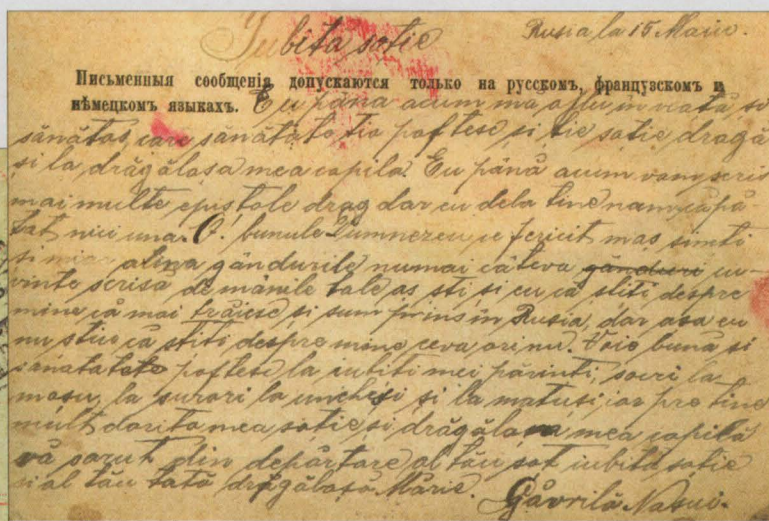 Iubita soție
Rusia, la 15 Maiu.
Письменныя сообщенія допускаются только на русскомъ, французскомъ и
нѣмецкомъ языкахъ. Eu pâna acum ma aflu in viată si
sănătos, care sănătate tio poftesc si tie soție dragă
si la drăgălașa mea copilă. Eu pâna acum vam scris
mai multe epistole drag dar eu dela tine nam căpă-
tat nici una. O! bunule Dumnezeu ce fericit mas simti
si mi alina gândurile numai câteva gânduri cu-
vinte scrisa de mânile tale as sti si eu că stiti despre
mine că mai trăiesc si sum prins in Rusia, dar asa eu
nu stiu că stiti despre mine ceva ori nu. Voie bună si
sănătate poftesc la iubiti mei părinti, socri la
mosu, la surori la unchesi si la matusi, iar pre tine
mult dorita mea soție si drăgălasa mea copilă
vă sarut din depărtare al tău soț iubită soție
si al tău tată drăgălașă Mărie. Găvrilă